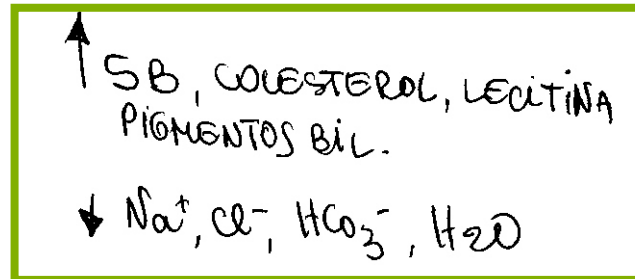 ↑ SB, COLESTEROL, LECITINA
PIGMENTOS BIL.
↓ Na⁺, Cl⁻, HCO₃⁻, H₂O